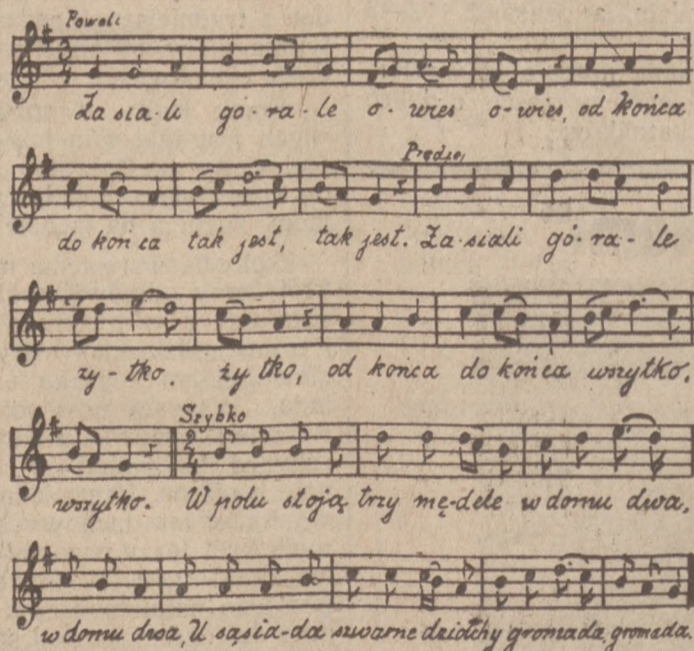 Powoli
Za sia-li gó-ra-le o-wies o-wies, od końca
Prędzej
do końca tak jest, tak jest. Za-siali gó-ra-le
ży-tko. ży tko, od końca do końca wszytko,
Szybko
wszytko. W polu stoją trzy mę-dele w domu dwa,
w domu dwa, U sąsia-da szwarne dziołchy gromada, gromada.